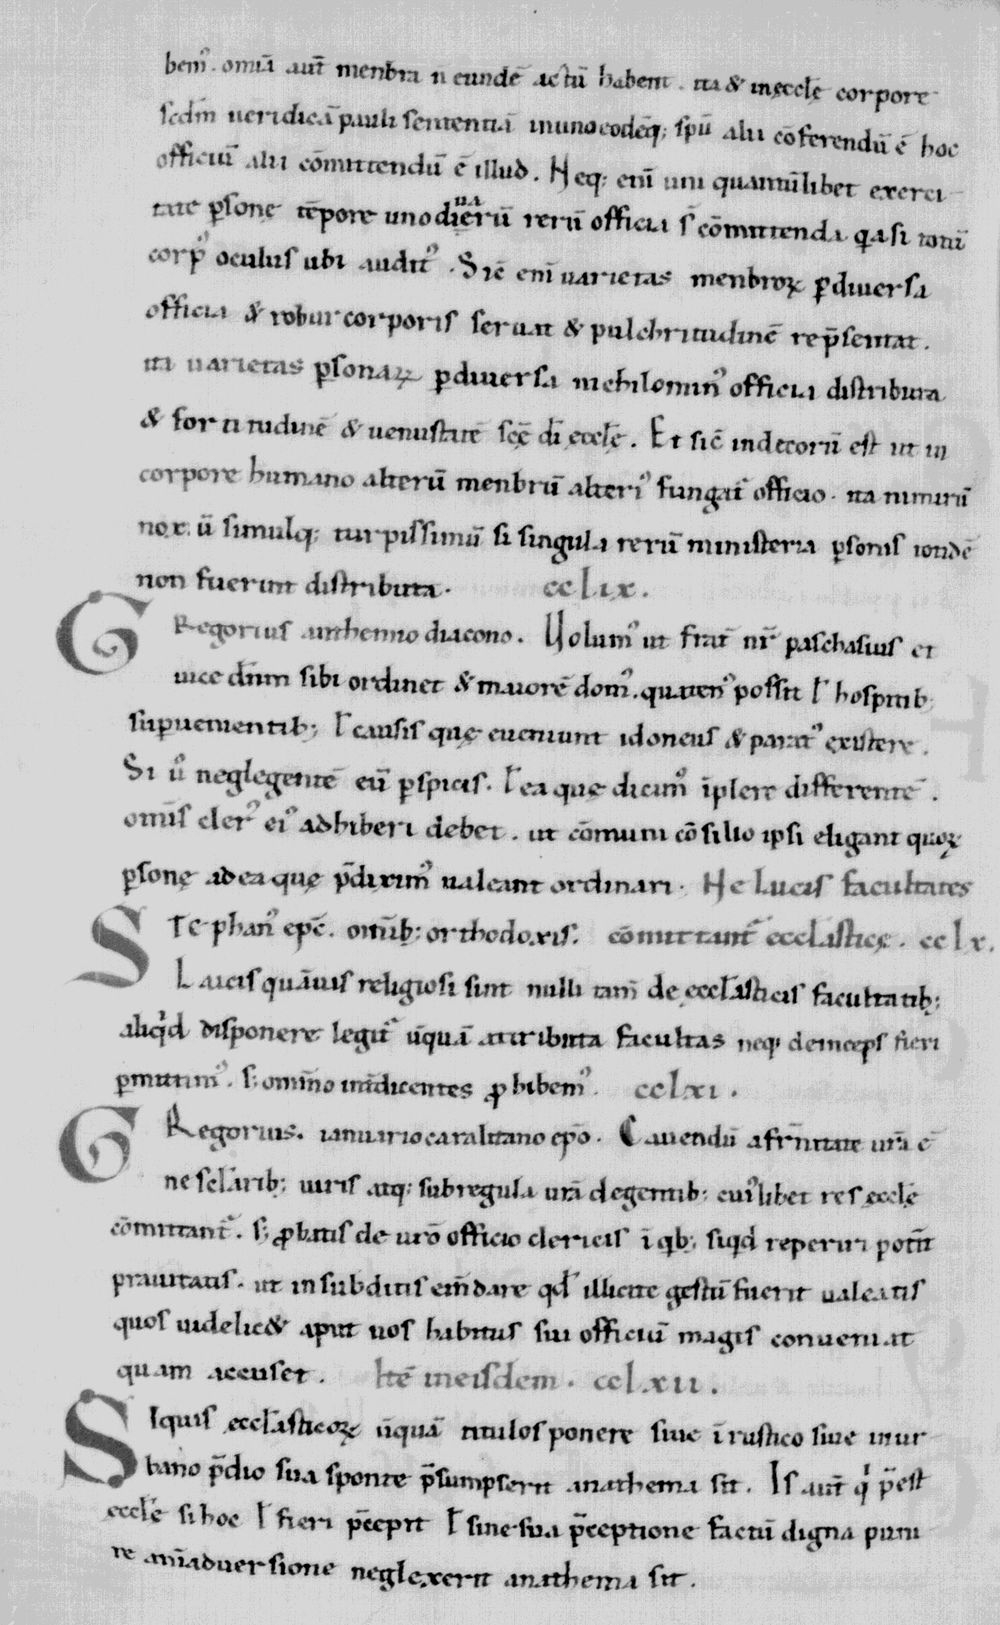 bem᷒. omia̅ aut̅ menbra n̅ eunde̅ actu̅ habent. ita & in ęccl̅ę corpore
scd̅m ueridica̅ pauli sententia̅ in uno eode̅q; spu̅ alii co̅ferendu̅ e̅ hoc
officiu̅ alii co̅mittendu̅ e̅ illud. Neq; eni̅ uni quantu̅libet exerci
tate ꝑsonę te̅pore uno diuerū reru̅ officia s̅ co̅mittenda qasi totu̅
corp᷒ oculus ubi audit᷒. Sic̅ eni̅ uarietas menbroꝝ ꝑ diuersa
officia & robur corporis seruat & pulchritudine̅ rep̅sentat.
ita uarietas ꝑsonaꝝ ꝑ diuersa nichilomin᷒ officia distributa
& fortitudine̅ & uenustate̅ sce̅ di̅ ęccl̅ę. Et sic̅ indecoru̅ est ut in
corpore humano alteru̅ menbru̅ alteri᷒ fungat᷒ officio. ita nimiru̅
nox.u̅ simulq; turpissimu̅ si singula reru̅ ministeria ꝑsonis totide̅
non fuerint distributa. cclix.
GRegorius anthemio diacono. Uolum᷒ ut frat̅ nr̅ paschasius et
uice dn̅m sibi ordinet & maiore̅ dom᷒. quaten᷒ possit ł hospitib;
suꝑuenientib; ł causis quę eueniunt idoneus & parat᷒ existere.
Si u᷒ neglegente̅ eu̅ ꝑspicis. ł ea quę dicim᷒ i̅plere differente̅.
omi̅s cler᷒ ei᷒ adhiberi debet. ut co̅muni co̅silio ipsi eligant quoꝝ
ꝑsonę ad ea quę p̅dixim᷒ ualeant ordinari. Ne lucis facultates
STephan᷒ epc̅. omi̅b; orthodoxis. co̅mittant᷒ ecclasticę. cclx.
Laicis qua̅uis religiosi sint nulli tam̅ de ęccl̅asticis facultatib;
aliq̇d disponere legit᷒ u̅qua̅ attributa facultas neq; deinceps fieri
ꝑmittim᷒. s; omi̅no int̅dicentes ꝓhibem᷒. cclxi.
GRegorius. ianuario caralitano epo̅. Cauendu̅ a frn̅itate ur̅a e̅
ne sclarib; uiris atq; sub regula ur̅a degentib; cui᷒libet res ęccl̅ę
co̅mittant᷒. s; ꝓbatis de ur̅o officio clericis i̅ qb; siqd reperiri potu̅it
prauitatis. ut in subditis em̅dare qd̅ illicite gestu̅ fuerit ualeatis
quos uidelic& aput uos habitus sui officiu̅ magis conueniat
quam accuset. Ite̅ in eisdem. cclxii.
SIquis ęccl̅asticoꝝ u̅qua̅ titulos ponere siue i̅ rustico siue in ur
bano p̅dio sua sponte p̅sumpserit anathema sit. Is aut̅ q̇ p̅est
ęccl̅ę si hoc ł fieri p̅cepit ł sine sua p̅ceptione factu̅ digna puni
re ani̅aduersione neglexerit anathema sit.